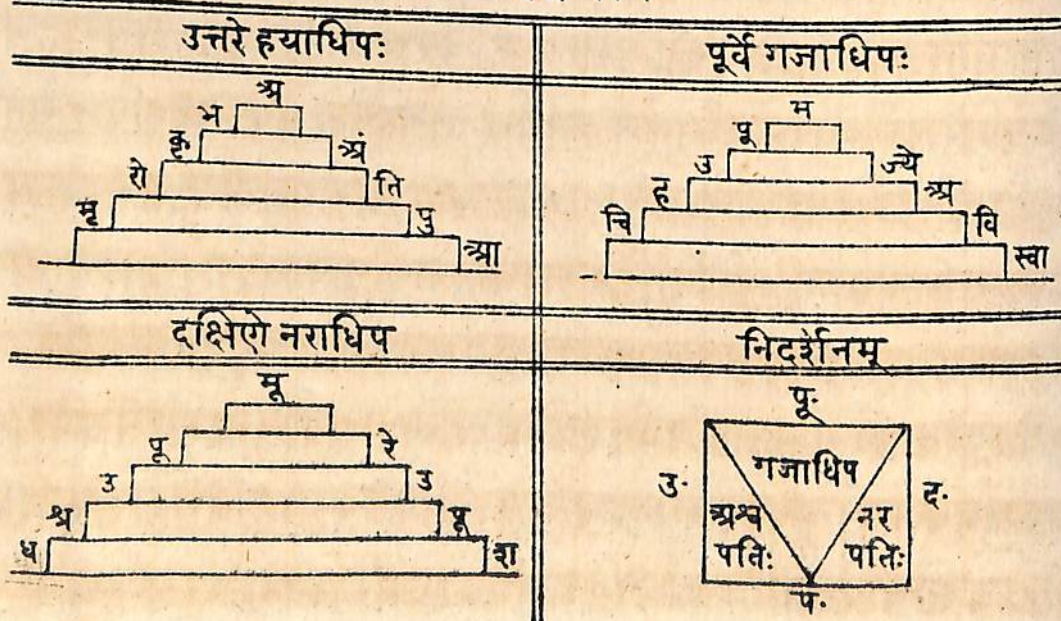 उत्तरे हयाधिपः
अ
भ
कृ अं
रो ति
मृ पु
आ
पूर्वे गजाधिपः
म
पू
उ ज्ये
ह अ
चि वि
स्वा
दक्षिणे नराधिप
मू
पू रे
उ उ
श्र पू
ध श
निदर्शनम्
पू.
गजाधिप
उ. द.
अश्व नर
पतिः पतिः
प.